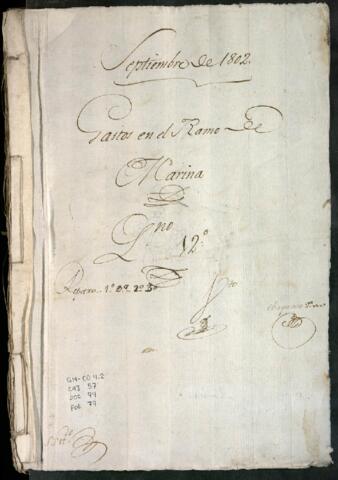 Septiembre de 1802.
Gastos en el Ramo de
Marina
L no 12.º
Reparo 1º 2º
GM-CO 4.2
CAJ 57
DOC 79
FOL 79